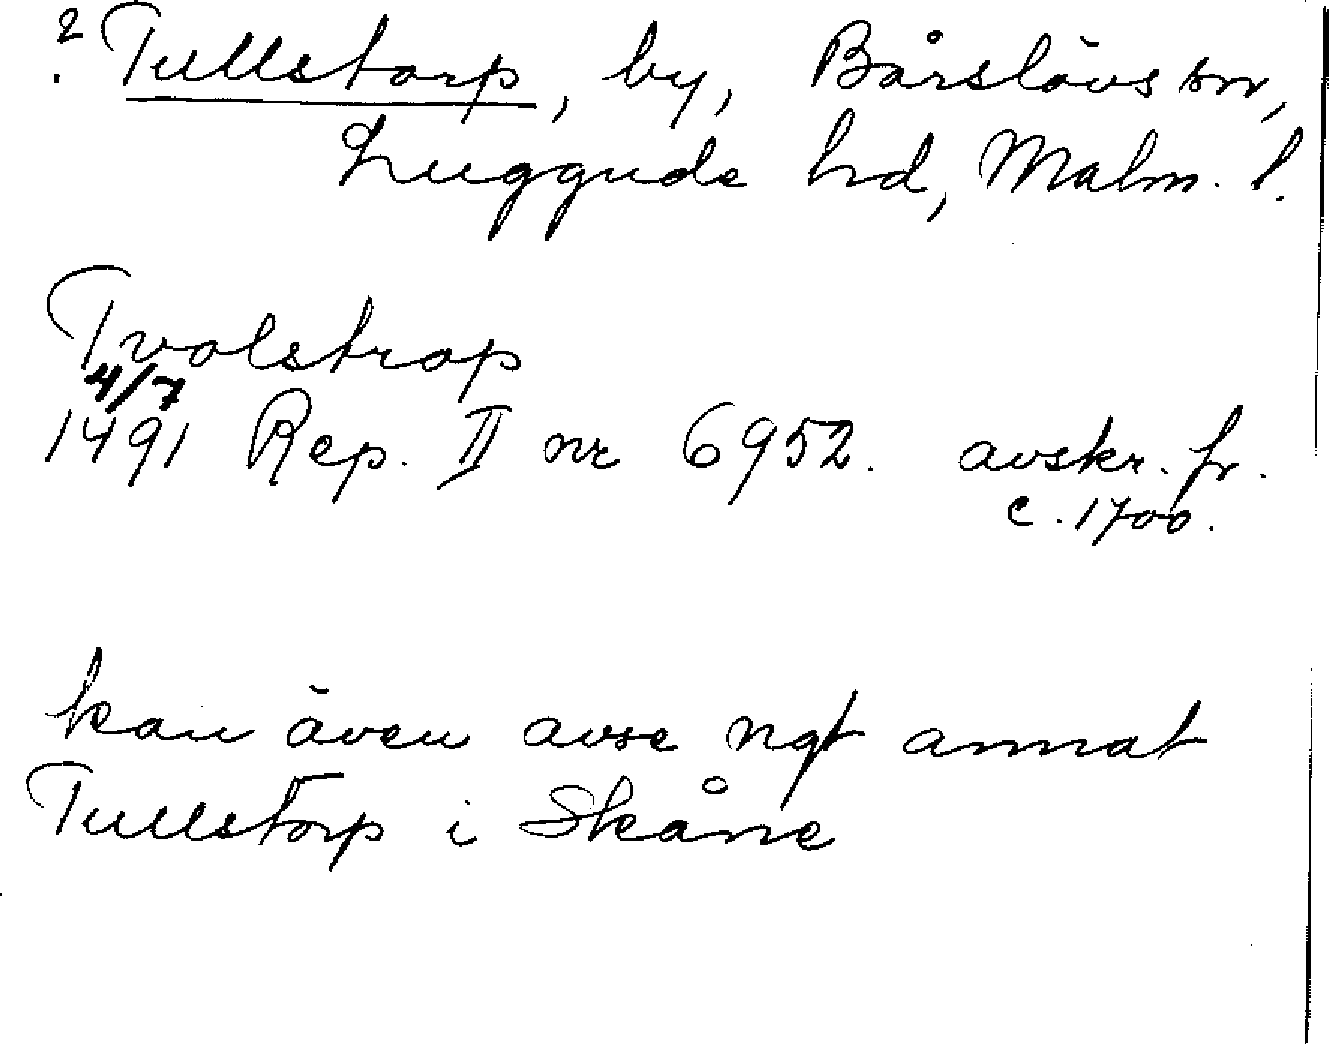 ? Tullstorp, by, Bårslövs sn,
Luggude hd, Malm. l.
Tvolstrop
4/7
1491 Rep. II nr 6952. avskr. fr.
c. 1700.
kan även avse ngt annat
Tullstorp i Skåne